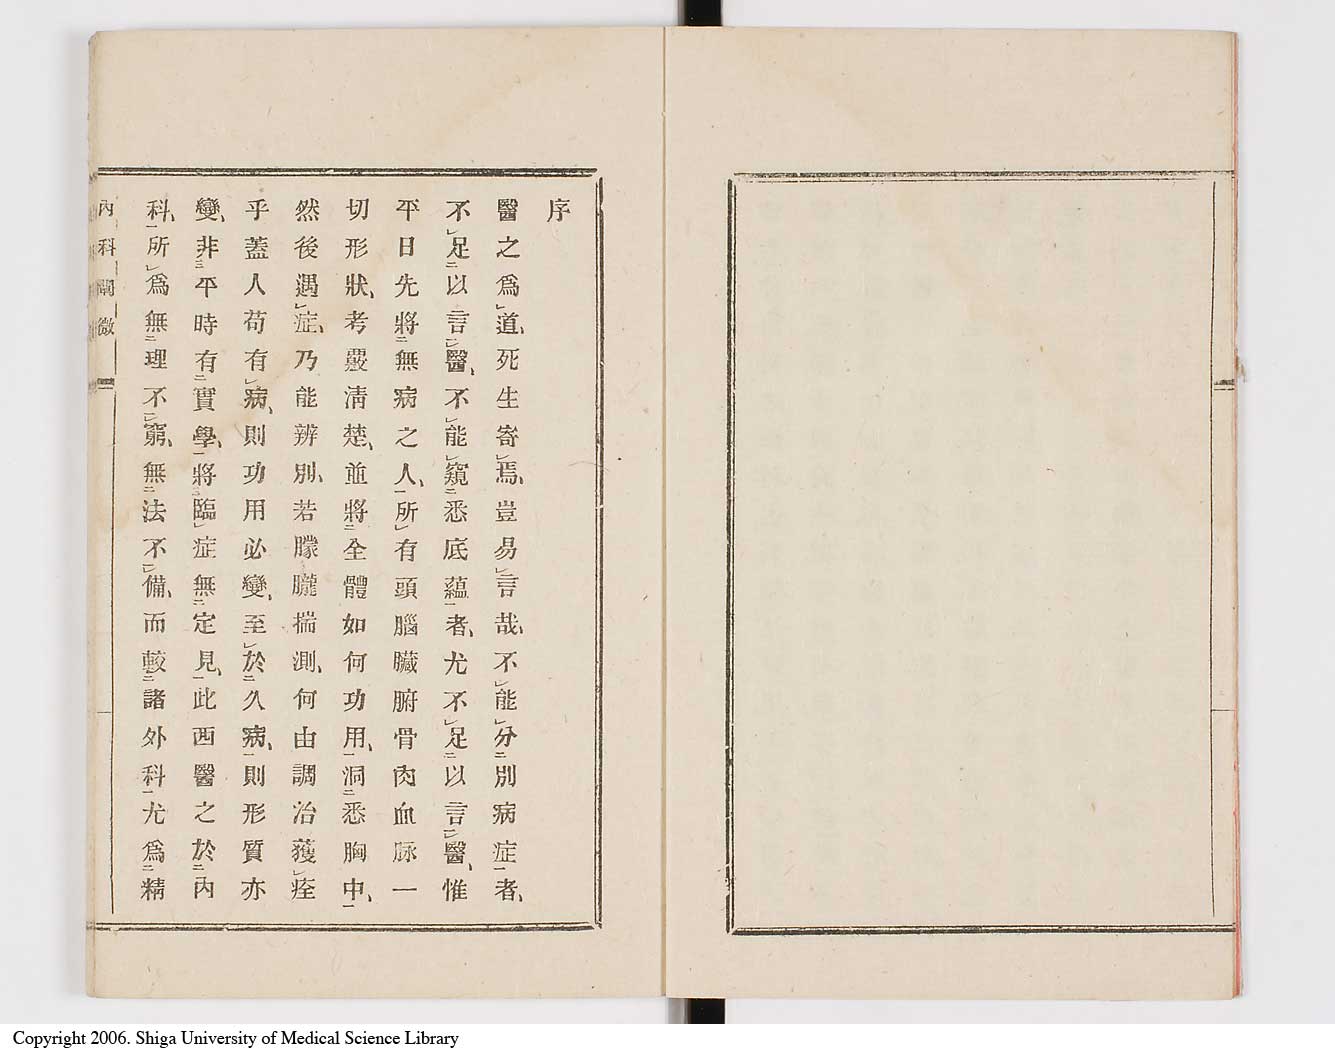 序
醫之爲道、死生寄焉、豈易言哉、不能分別病症者、
不足以言醫、不能窺悉底蘊者、尤不足以言醫、惟
平日先將無病之人、所有頭腦臟腑骨肉血脉一
切形狀、考覈淸楚、並將全體如何功用、洞悉胸中、
然後遇症、乃能辨別、若朦朧揣測、何由調治獲痊
乎蓋人苟有病、則功用必變、至於久病、則形質亦
變、非平時有實學、將臨症無定見、此西醫之於内
科、所爲無理不窮、無法不備、而較諸外科尤爲精
內科闡微
Copyright 2006. Shiga University of Medical Science Library